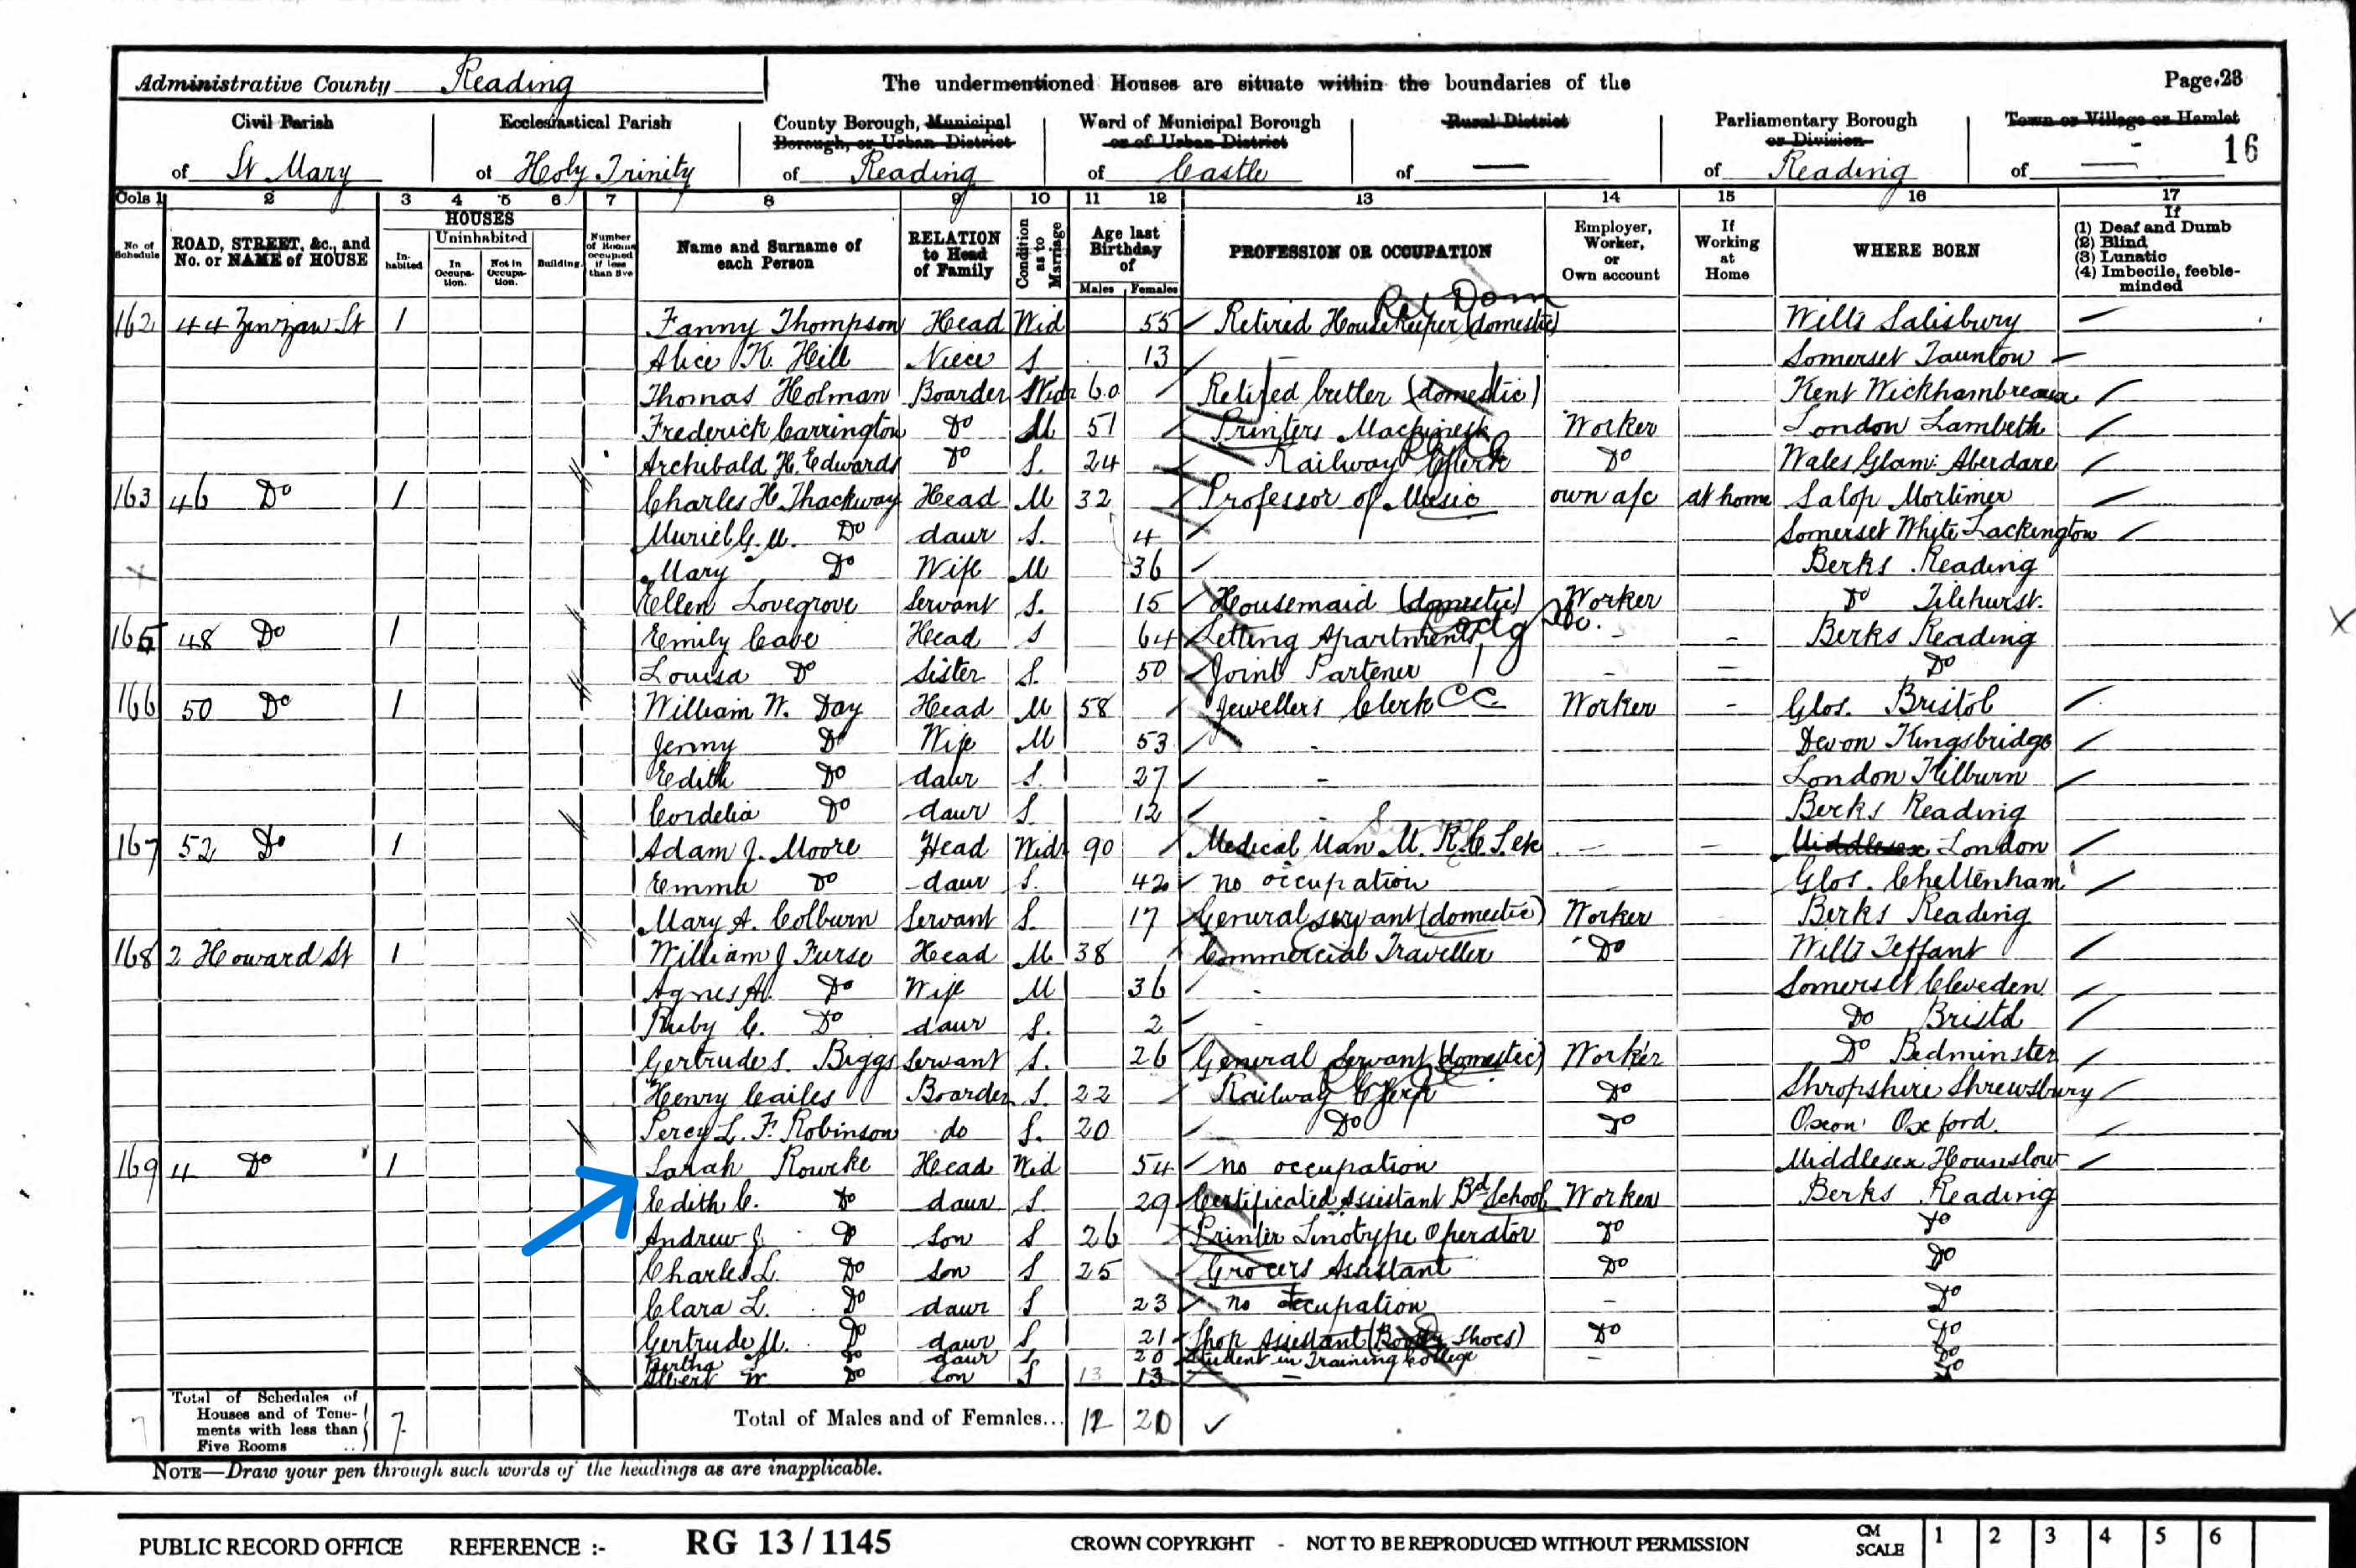 Administrative County Reading The undermentioned Houses are situate within the boundaries of the Page 28
Civil Parish Ecclesiastical Parish County Borough, Municipal Borough, or Urban District Ward of Municipal Borough or of Urban District Rural District Parliamentary Borough or Division Town or Village or Hamlet
of St Mary of Holy Trinity of Reading of Castle of — of Reading of — 16
Cols 1 2 3 4 5 6 7 8 9 10 11 12 13 14 15 16 17
No of Schedule ROAD, STREET, &c., and No. or NAME of HOUSE HOUSES In-habited Uninhabited In Occupa-tion. Not in Occupa-tion. Building. Number of Rooms occupied if less than five Name and Surname of each Person RELATION to Head of Family Condition as to Marriage Age last Birthday of Males Females PROFESSION OR OCCUPATION Employer, Worker, or Own account If Working at Home WHERE BORN If (1) Deaf and Dumb (2) Blind (3) Lunatic (4) Imbecile, feeble-minded
Ret Dom
162 44 Zinzan St 1 Fanny Thompson Head Wid 55 Retired Housekeeper (domestic) Wilts Salisbury
Alice K. Hill Niece S. 13 Somerset Taunton
Thomas Holman Boarder Widr 60 Retired butler (domestic) Kent Wickhambreaux
Frederick Carrington Do M 51 Printers Machinist Worker London Lambeth
Archibald H. Edwards Do S. 24 Railway Clerk Do Wales Glam: Aberdare
163 46 Do 1 Charles H Thackway Head M 32 Professor of Music own a/c at home Salop Mortimer
Muriel G. M. Do daur S. 4 Somerset White Lackington
Mary Do Wife M 36 Berks Reading
Ellen Lovegrove Servant S. 15 Housemaid (domestic) Worker Do Tilehurst.
165 48 Do 1 Emily Cave Head S 64 Letting Apartments Do. Berks Reading
Louisa Do Sister S. 50 Joint Partener Do
166 50 Do 1 William W. Day Head M 58 Jewellers Clerk CC. Worker Glos. Bristol
Jenny Do Wife M 53 Devon Kingsbridge
Edith Do daur S. 27 London Kilburn
Cordelia Do daur S. 12 Berks Reading
167 52 Do 1 Adam J. Moore Head Widr 90 Medical Man M.R.C.S. etc Middlesex London
Emma Do daur S. 42 no occupation Glos. Cheltenham
Mary A. Colburn Servant S. 17 General servant (domestic) Worker Berks Reading
168 2 Howard St 1 William J Furse Head M 38 Commercial Traveller Do Wilts Teffant
Agnes A. Do Wife M 36 Somerset Clevedon
Ruby C. Do daur S. 2 Do Bristol
Gertrude S. Biggs Servant S. 26 General Servant (domestic) Worker Do Bedminster
Henry Cailes Boarder S. 22 Railway Clerk Do Shropshire Shrewsbury
Percy L. F. Robinson do S. 20 Do Do Oxon Oxford.
169 4 Do 1 Sarah Rowcke Head Wid 54 no occupation Middlesex Hounslow
Edith C. Do daur S. 29 Certificated Assistant Bd School Worker Berks Reading
Andrew J. Do son S 26 Printer Linotype Operator Do Do
Charles L. Do son S 25 Grocers Assistant Do Do
Clara L. Do daur S 23 no occupation Do
Gertrude M. Do daur S 21 Shop Assistant (Boots Shoes) Do Do
Bertha Do daur S 20 Student in Training College Do
Albert W Do son S 13 13 Do
7 Total of Schedules of Houses and of Tene-ments with less than Five Rooms 7 Total of Males and of Females... 12 20
NOTE—Draw your pen through such words of the headings as are inapplicable.
PUBLIC RECORD OFFICE REFERENCE :- RG 13/1145 CROWN COPYRIGHT - NOT TO BE REPRODUCED WITHOUT PERMISSION CM SCALE 1 2 3 4 5 6